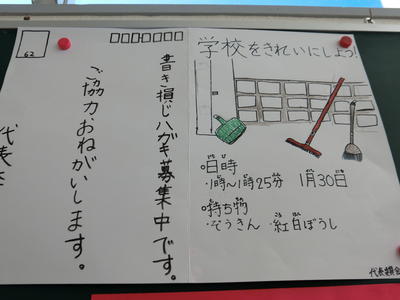 学校をきれいにしよう!
日時
・1時~1時25分 1月30日
持ち物
・ぞうきん ・紅白ぼうし
代表委員会
62
書き損じハガキ募集中です。
ご協力おねがいします。
代表委